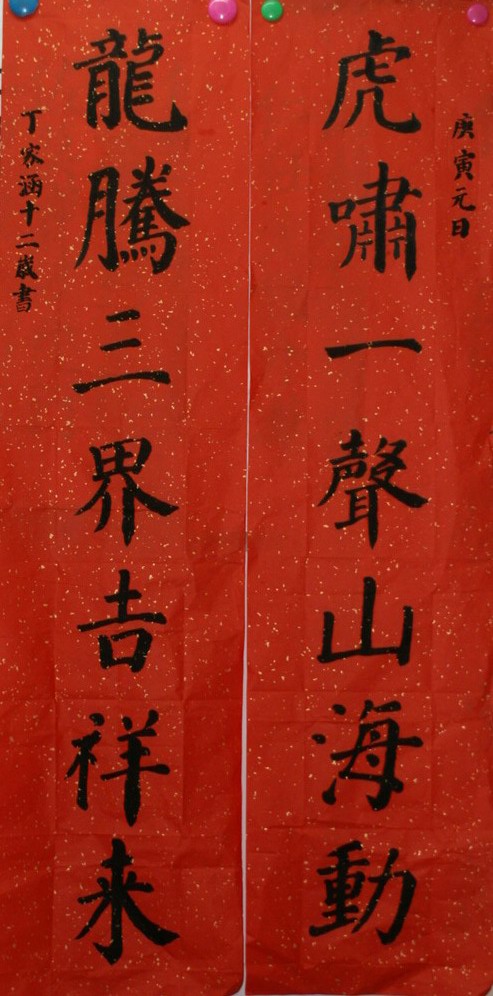 庚寅元日
虎嘯一聲山海動
龍騰三界吉祥来
丁家涵十二歲書